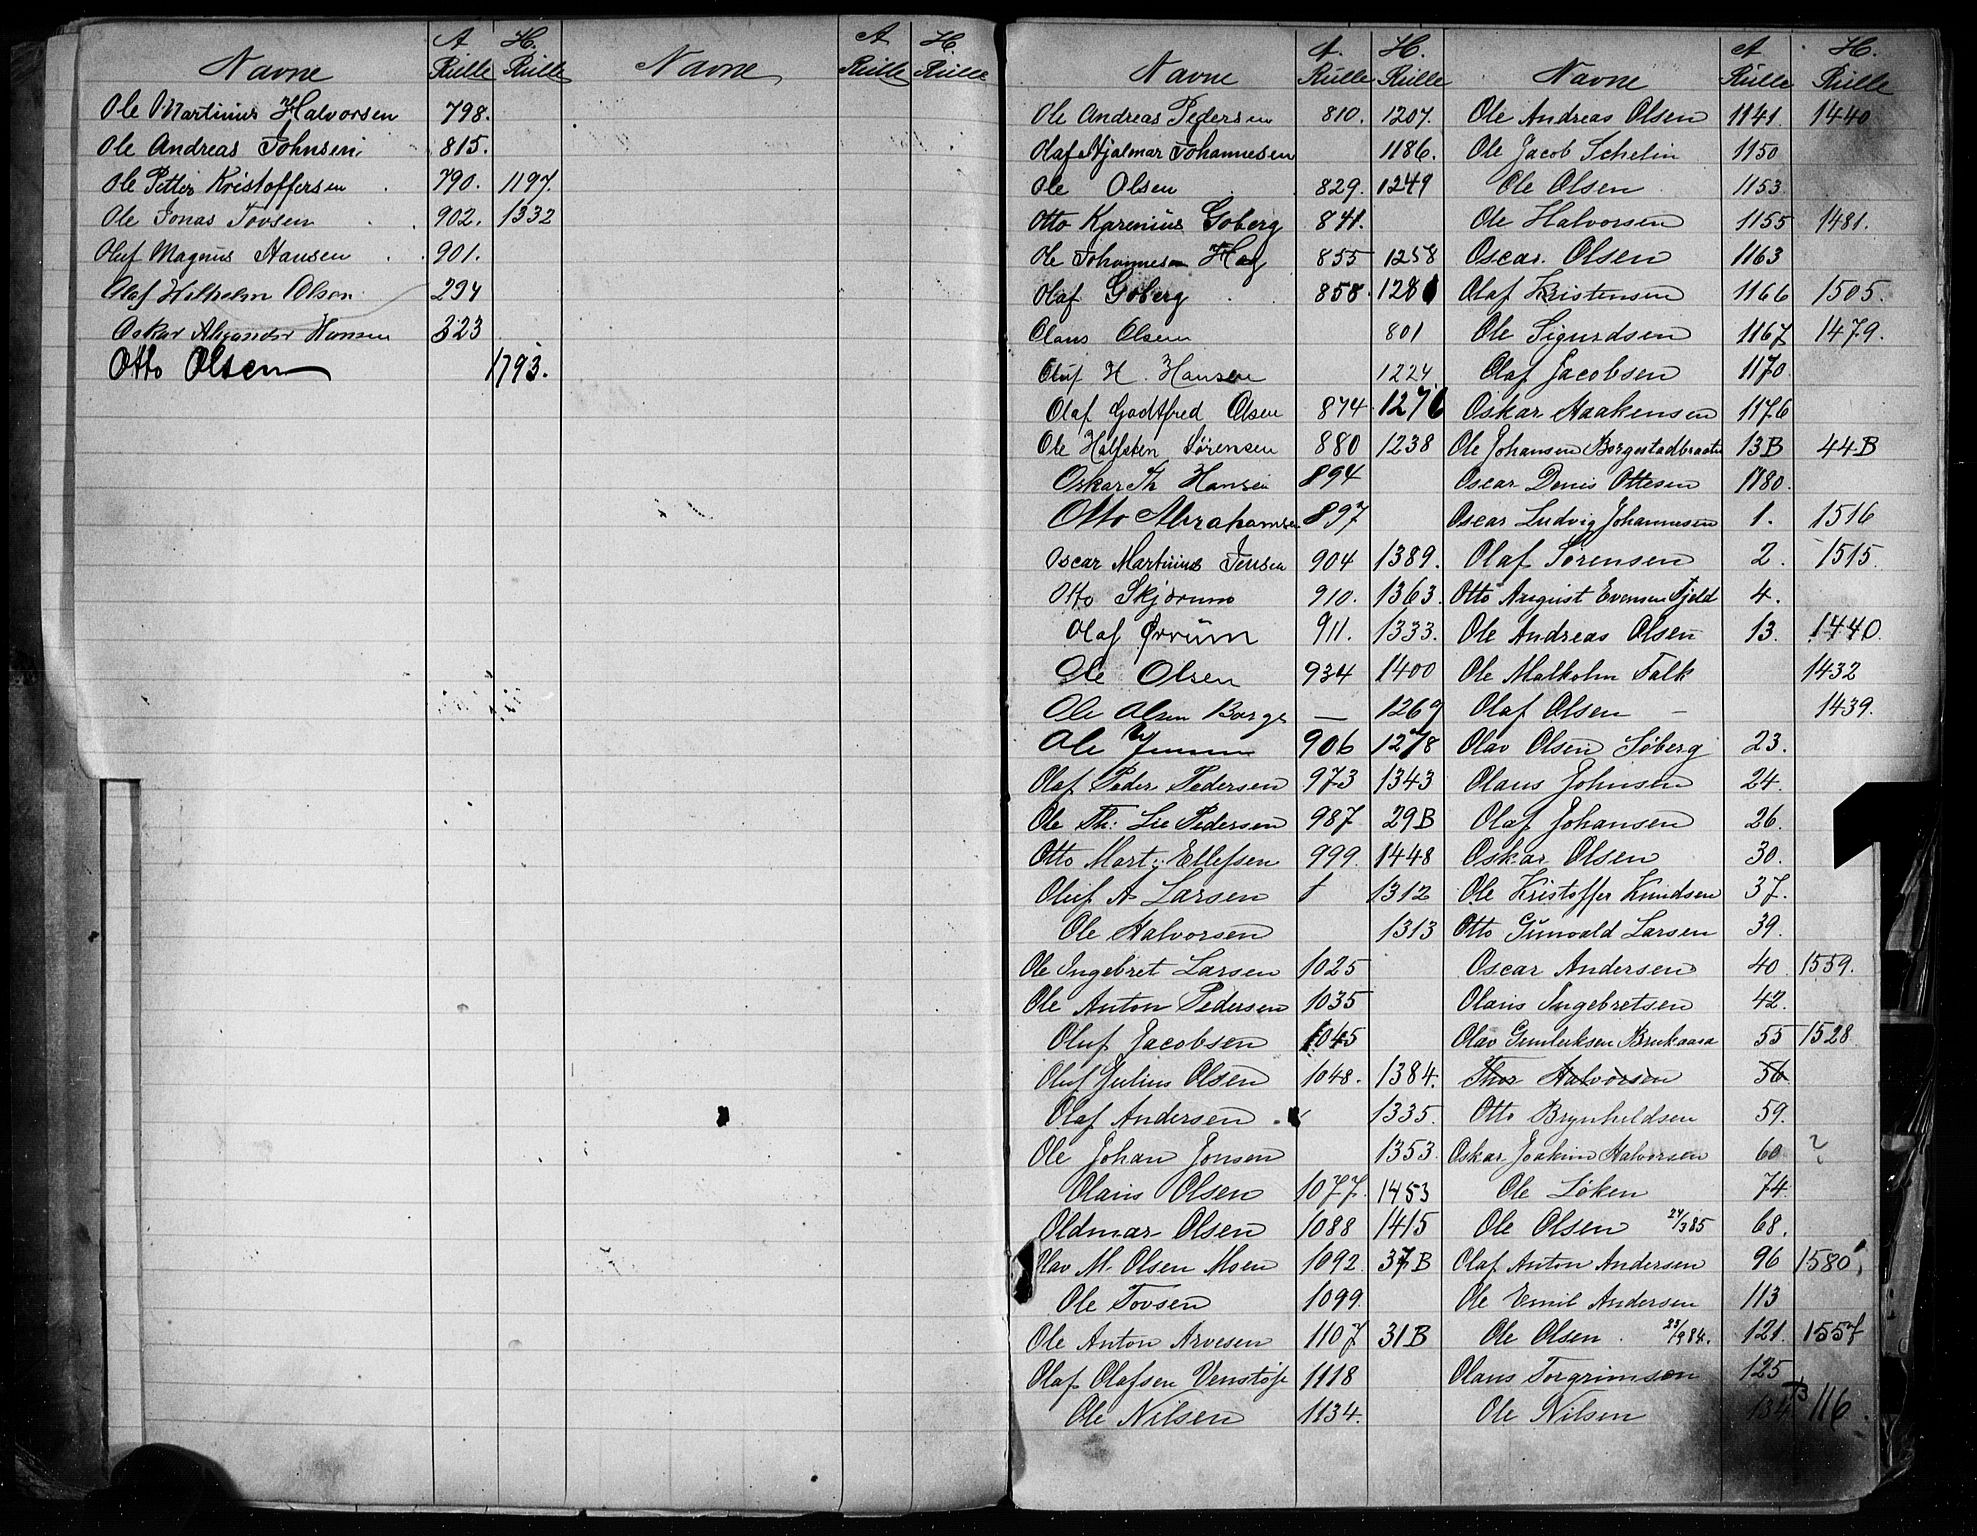 Navne A Rulle H. Rulle Navne A Rulle H. Rulle
Ole Martinius Halvorsen 798.
Ole Andreas Johnsen 815.
Ole Petter Kristoffersen 790. 1197.
Ole Jonas Tovsen 902. 1332
Oluf Magnus Hansen 901.
Olaf Wilhelm Olsen 294
Oskar Alexander Hansen 323
Otto Olsen 1793.
Navne A. Rulle H. Rulle Navne A Rulle H. Rulle
Ole Andreas Pedersen 810. 1207. Ole Andreas Olsen 1141. 1440
Olaf Hjalmar Johannesen 1186. Ole Jacob Schelin 1150
Ole Olsen 829. 1249 Ole Olsen 1153
Otto Karenius Goberg 841. Ole Halvorsen 1155 1481.
Ole Johannesen Hag 855 1258 Oscar Olsen 1163
Olaf Goberg 858. 128 Olaf Kristensen 1166 1505.
Olaus Olsen 801 Ole Sigurdsen 1167 1479.
Oluf H. Hansen 1224 Olaf Jacobsen 1170
Olaf Godtfred Olsen 874 1276 Oskar Haakensen 1176
Ole Halfsten Sørensen 880 1238 Ole Johansen Borgestadbraaten 13B 44B
Oskar Th Hansen 894 Oscar Denis Ottesen 1180.
Otto Abrahamsen 897 Oscar Ludvig Johannesen 1. 1516
Oscar Martinius Jensen 904 1389. Olaf Sørensen 2. 1515.
Otto Skjørum 910. 1363. Otto August Evensen Fjeld 4.
Olaf Ørvum 911. 1333. Ole Andreas Olsen 13. 1440.
Ole Olsen 934 1400 Ole Malkolm Falk 1432
Ole Olsen Borge — 1269 Olaf Olsen — 1439.
Ole Jensen 906 1278 Olav Olsen Søberg 23.
Olaf Peder Pedersen 973 1343 Olaus Johnsen 24.
Ole Th. Lie Pedersen 987 29B Olaf Johansen 26.
Otto Mart: Ellefsen 999. 1448 Oskar Olsen 30.
Oluf A Larsen 1312 Ole Kristoffer Knudsen 37.
Ole Halvorsen 1313 Otto Gunvald Larsen 39.
Ole Ingebret Larsen 1025 Oscar Andersen 40. 1559.
Ole Anton Pedersen 1035 Olaus Ingebretsen 42.
Oluf Jacobsen 1045 Olav Gunleiksen 55 1528
Oluf Julius Olsen 1048. 1384. Thor Halvorsen 56
Olaf Andersen 1335. Otto Brynhildsen 59.
Ole Johan Jonsen 1353. Oskar Joakim Halvorsen 60 ?
Olaus Olsen 1077. 1453 Ole Løken 74
Oldmar Olsen 1088 1415 Ole Olsen 24/3 85 68.
Olav M. Olsen Moen 1092. 37B Olaf Anton Andersen 96 1580
Ole Tovsen 1099. Ole Emil Andersen 113
Ole Anton Arvesen 1107 31B Ole Olsen 25/9 84. 121. 1557
Olaf Olafsen Venstøp 1118 Olaus Torgrimsen 125
Ole Nilsen 1134. Ole Nilsen 134 116